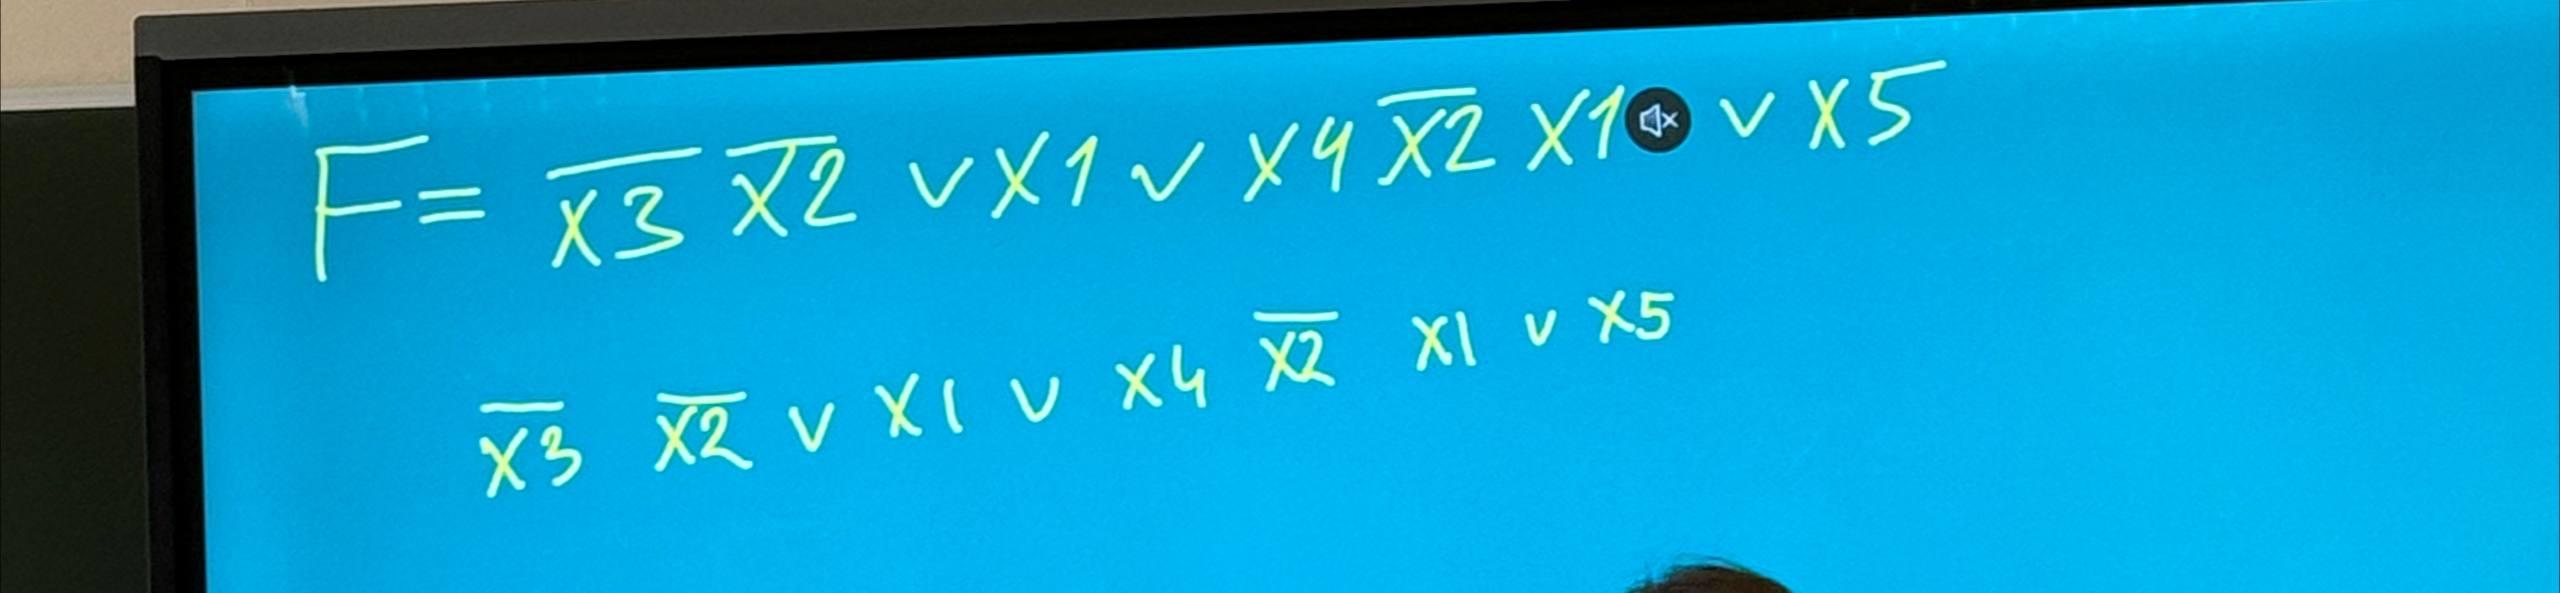 F= x̅3̅ x̅2̅ ∨ x1 ∨ x4 x̅2̅ x1 ∨ x5
x̅3̅ x̅2̅ ∨ x1 ∨ x4 x̅2̅ x1 ∨ x5